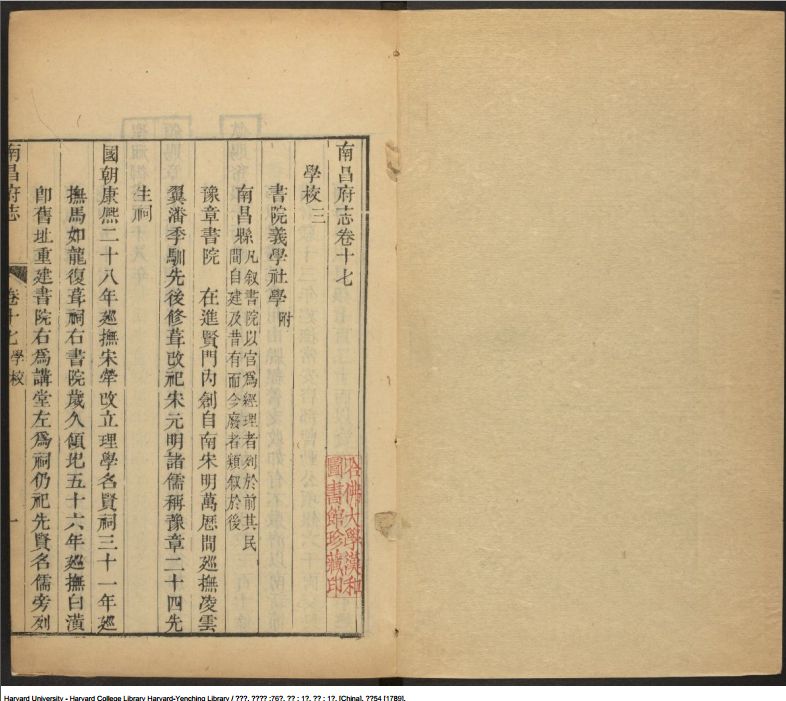 南昌府志卷十七
學校三
書院義學社學附
南昌縣凡叙書院以官爲經理者列於前其民
間自建及昔有而今廢者類叙於後
豫章書院　在進賢門內創自南宋明萬厯間廵撫凌雲
翼潘季馴先後修葺改祀宋元明諸儒稱豫章二十四先
生祠
國朝康熈二十八年廵撫宋犖改立理學名賢祠三十一年廵
撫馬如龍復葺祠右書院歲久傾圯五十六年廵撫白潢
卽舊址重建書院右爲講堂左爲祠仍祀先賢名儒旁列
南昌府志　卷十七學校　一
哈佛大學漢和
圖書館珍藏印
Harvard University - Harvard College Library Harvard-Yenching Library / ???. ???? :76?. ?? : 1?, ?? : 1?. [China], ??54 [1789].